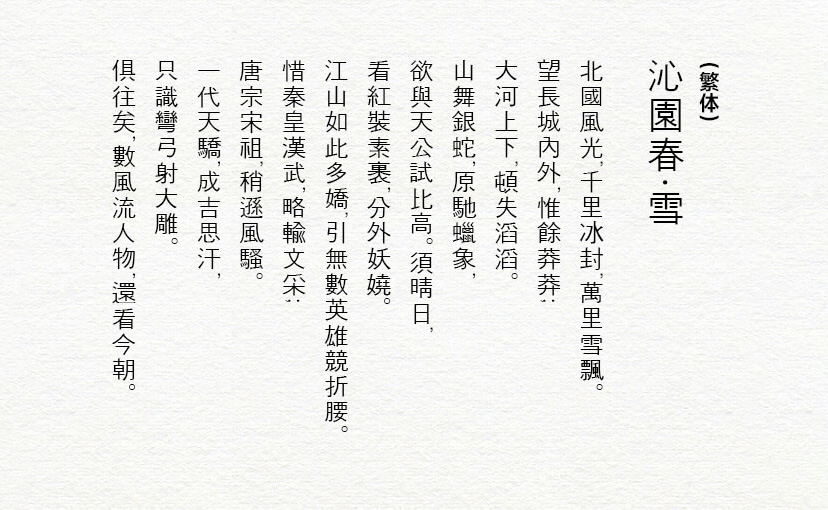 (繁体)
沁園春·雪
北國風光,千里冰封,萬里雪飄。
望長城內外,惟餘莽莽
大河上下,頓失滔滔。
山舞銀蛇,原馳蠟象,
欲與天公試比高。須晴日,
看紅裝素裹,分外妖嬈。
江山如此多嬌,引無數英雄競折腰。
惜秦皇漢武,略輸文采
唐宗宋祖,稍遜風騷。
一代天驕,成吉思汗,
只識彎弓射大雕。
俱往矣,數風流人物,還看今朝。